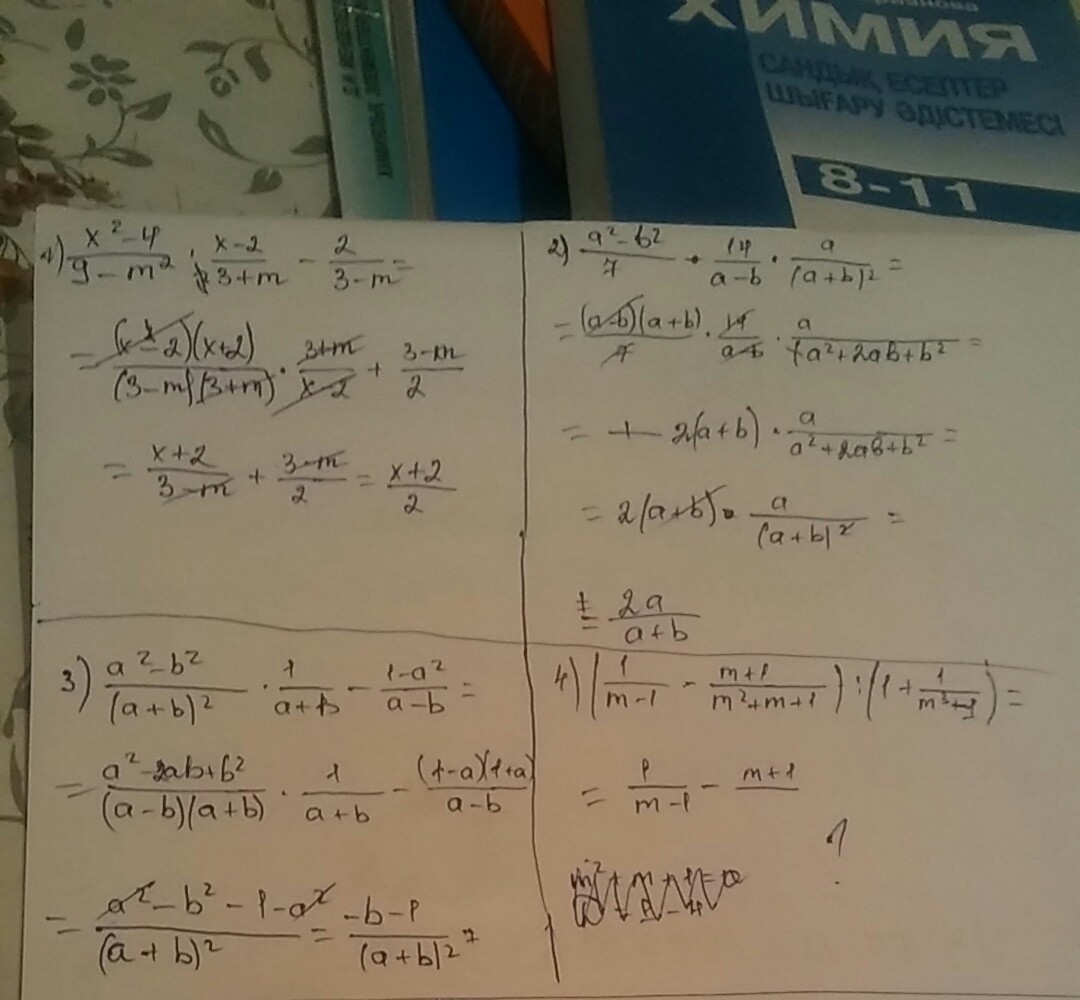 ХИМИЯ
САНДЫҚ ЕСЕПТЕР
ШЫҒАРУ ӘДІСТЕМЕСІ
8-11
1) (x²-4)/(9-m²) : (x-2)/(3+m) - 2/(3-m) =
= (x-2)(x+2)/(3-m)(3+m) · (3+m)/(x-2) + (3-m)/2
= (x+2)/(3-m) + (3-m)/2 = (x+2)/2
2) (a²-b²)/7 · 14/(a-b) · a/(a+b)² =
= (a-b)(a+b)/7 · 14/(a-b) · a/(a²+2ab+b²) =
= 2(a+b) · a/(a²+2ab+b²) =
= 2(a+b) · a/(a+b)² =
= 2a/(a+b)
3) (a²-b²)/(a+b)² · 1/(a+b) - (1-a²)/(a-b) =
= (a²-2ab+b²)/(a-b)(a+b) · 1/(a+b) - (1-a)(1+a)/(a-b)
= (a²-b²-1-a²)/(a+b)² = (-b-1)/(a+b)²
4) (1/(m-1) - (m+1)/(m²+m+1)) : (1 + 1/(m³-1)) =
= 1/(m-1) - m+1
?